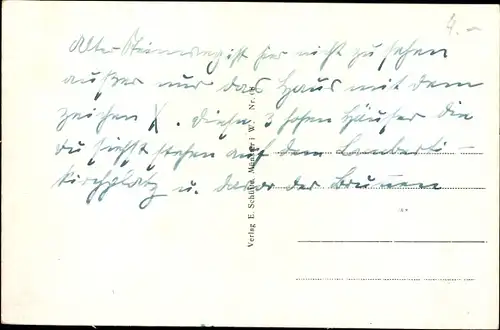 4.-
Alter Steinweg ist hier nicht zu sehen
außer nur das Haus mit dem
zeichen X. Diese 3 hohen Häuser die
du siehst stehen auf dem Lamberti-
kirchplatz u. davor der Brunnen
Verlag E. Schulte, Münster i. W. Nr.